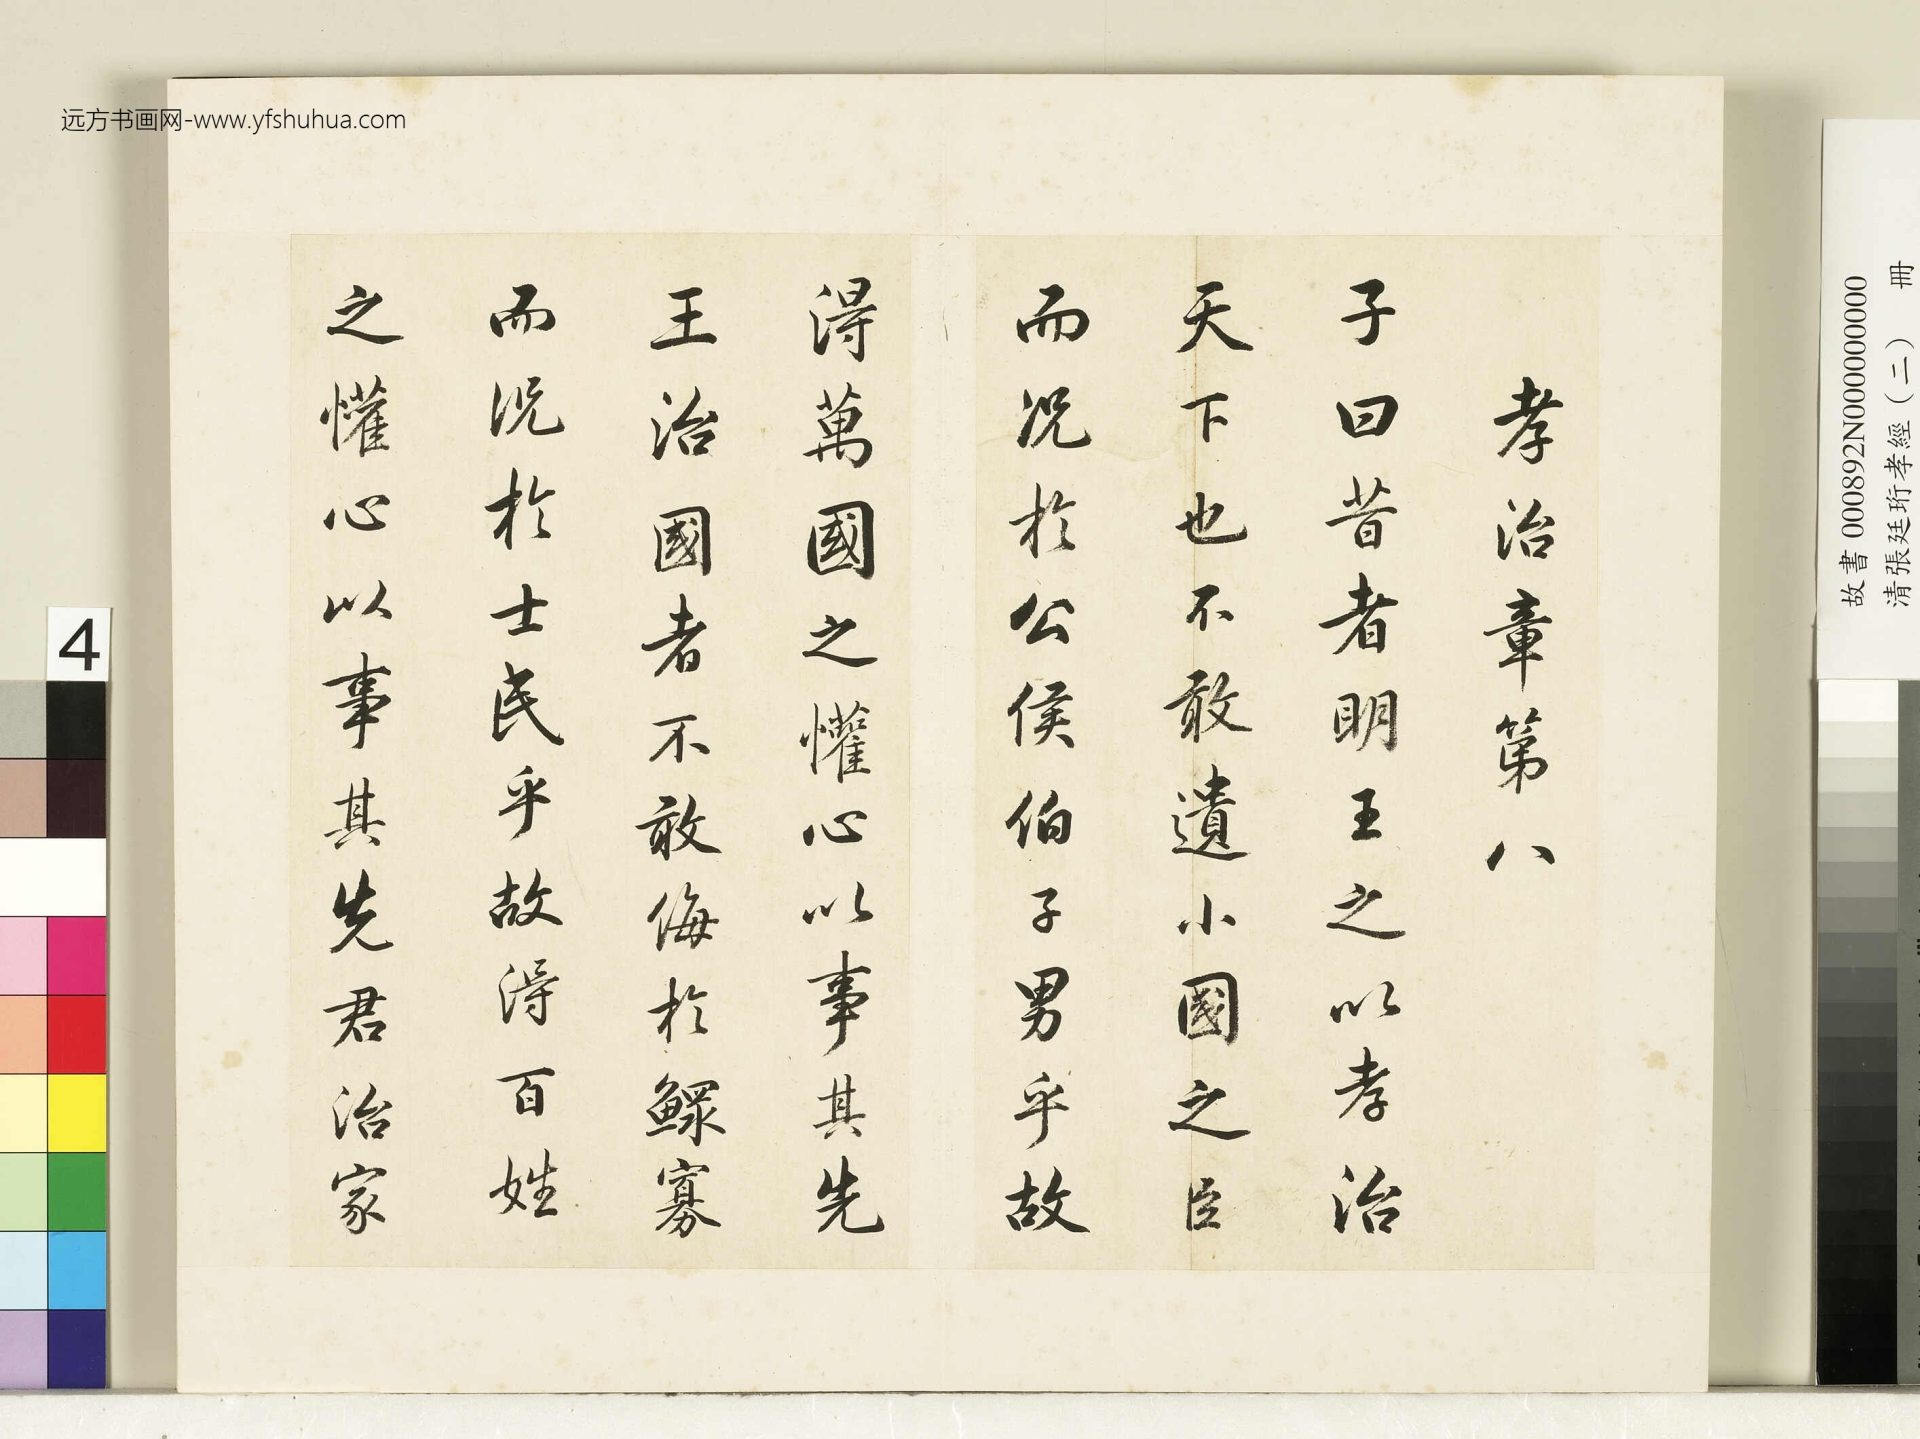 远方书画网-www.yfshuhua.com
孝治章第八
子曰昔者明王之以孝治
天下也不敢遺小國之臣
而況於公侯伯子男乎故
得萬國之懽心以事其先
王治國者不敢侮於鰥寡
而況於士民乎故得百姓
之懽心以事其先君治家
故書 000892N000000000
清張廷珩孝經(二) 冊
4